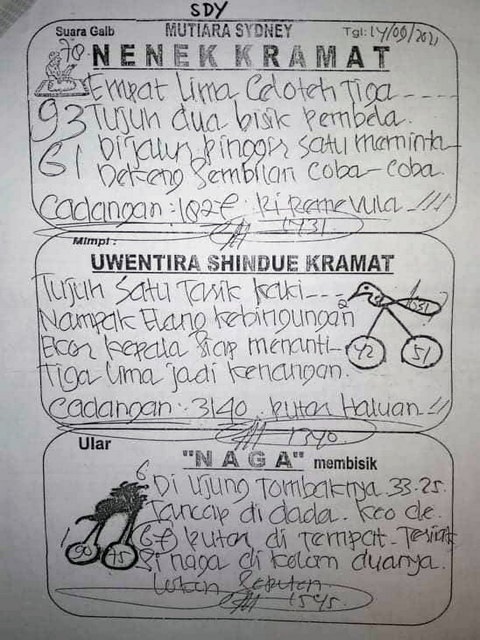 SDY
Suara Gaib MUTIARA SYDNEY Tgl: 14/09/2021
NENEK KRAMAT
Empat Lima Celoteh Tiga
93 Tujuh dua bisik pembela.
61 Dijaur pinggir satu meminta
Dekeng Sembilan Coba-Coba.
Cadangan: 1028
4431
Mimpi:
UWENTIRA SHINDUE KRAMAT
Tujuh Satu Tarik kaki
Nampak Elang kebingungan
Ekor kepala siap menanti
42 51
Tiga Lima jadi kenangan.
Cadangan: 3140. putar Haluan
1340
Ular
"NAGA" membisik
6 Di Ujung Tombaknya 33-25.
Tancap di dada. Keo de.
1 90 75
putar di tempat. Teriak
Si naga di kolam duanya.
1545